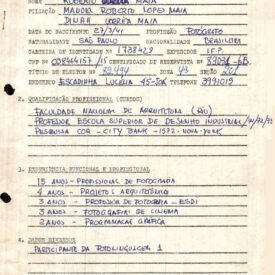 NOME ROBERTO MAIA
FILIAÇÃO MANOEL ROBERTO LOPES MAIA
DINAH CORRÊA MAIA
DATA DO NASCIMENTO 27/3/41 PROFISSÃO FOTÓGRAFO
NATURALIDADE SÃO PAULO NACIONALIDADE BRASILEIRA
CARTEIRA DE IDENTIDADE Nº 1738429 EXPEDIDOR I.F.P.
CPF 008464157/15 CERTIFICADO DE RESERVISTA Nº
TÍTULO DE ELEITOR Nº 82494 ZONA SEÇÃO
ENDEREÇO ESCADINHA TELEFONE
2. QUALIFICAÇÃO PROFISSIONAL (CURSOS)
FACULDADE NACIONAL DE ARQUITETURA
PROFESSOR ESCOLA SUPERIOR DE DESENHO INDUSTRIAL
PESQUISA COR - CITY BANK - 1972 - NOVA-YORK
3. EXPERIÊNCIA FUNCIONAL E PROFISSIONAL
15 ANOS - PROFISSIONAL DE FOTOGRAFIA
4 ANOS - PROJETOS ARQUITETÔNICO
3 ANOS - PROFESSOR DE FOTOGRAFIA - ESDI
3 ANOS - FOTOGRAFIA DE CINEMA
2 ANOS - PROGRAMAÇÃO GRÁFICA
4. DADOS DIVERSOS
PARTICIPANTE DA FOTOLINGUAGEM 1